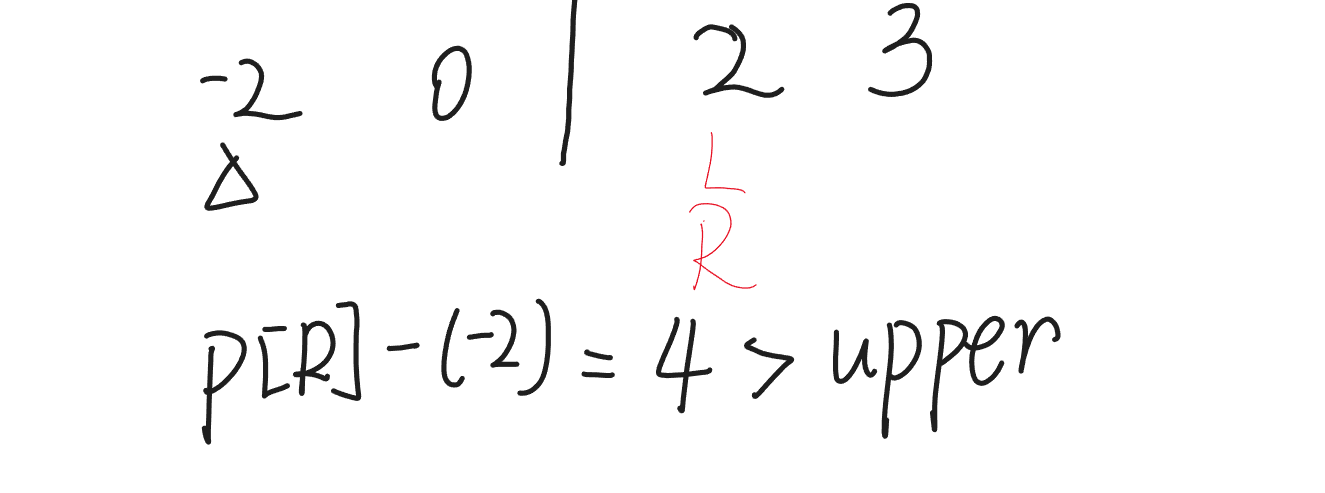 -2 0 | 2 3
Δ L
R
p[R] - (-2) = 4 > upper